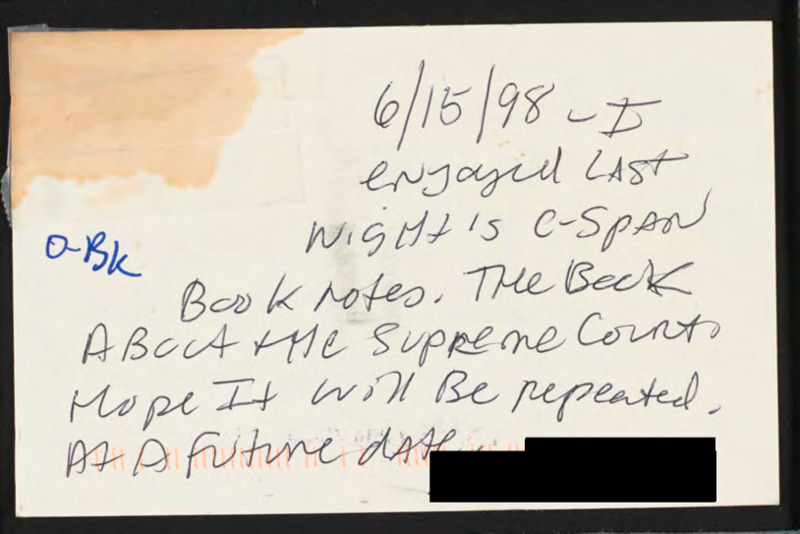 6/15/98 - I
enjoyed LAST
NigHt's C-SPAN
O-BK
Book Notes. THe Book
ABout tHe Supreme Court.
Hope It will Be repeated.
At A Future date.